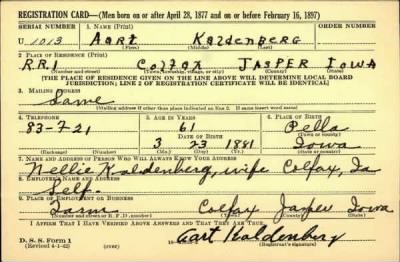 REGISTRATION CARD—(Men born on or after April 28, 1877 and on or before February 16, 1897)
SERIAL NUMBER 1. NAME (Print) ORDER NUMBER
U 1013 Aart Kaldenberg
(First) (Middle) (Last)
2 PLACE OF RESIDENCE (Print)
R.R.1 Colfax Jasper Iowa
(Number and street) (Town, township, village, or city) (County) (State)
[THE PLACE OF RESIDENCE GIVEN ON THE LINE ABOVE WILL DETERMINE LOCAL BOARD
JURISDICTION; LINE 2 OF REGISTRATION CERTIFICATE WILL BE IDENTICAL]
3. MAILING ADDRESS
Same
[Mailing address if other than place indicated on line 2. If same insert word same]
4. TELEPHONE 5. AGE IN YEARS 6. PLACE OF BIRTH
83-F-21 61 Pella
DATE OF BIRTH (Town or county)
3 23 1881 Iowa
(Exchange) (Number) (Mo.) (Day) (Yr.) (State or country)
7. NAME AND ADDRESS OF PERSON WHO WILL ALWAYS KNOW YOUR ADDRESS
Nellie Kaldenberg, wife Colfax, Ia
8. EMPLOYER'S NAME AND ADDRESS
Self-
9. PLACE OF EMPLOYMENT OR BUSINESS
Farm Colfax Jasper Iowa
(Number and street or R. F. D. number) (Town) (County) (State)
I AFFIRM THAT I HAVE VERIFIED ABOVE ANSWERS AND THAT THEY ARE TRUE.
D. S. S. Form 1
(Revised 4-1-42) (over) Aart Kaldenberg
(Registrant's signature)